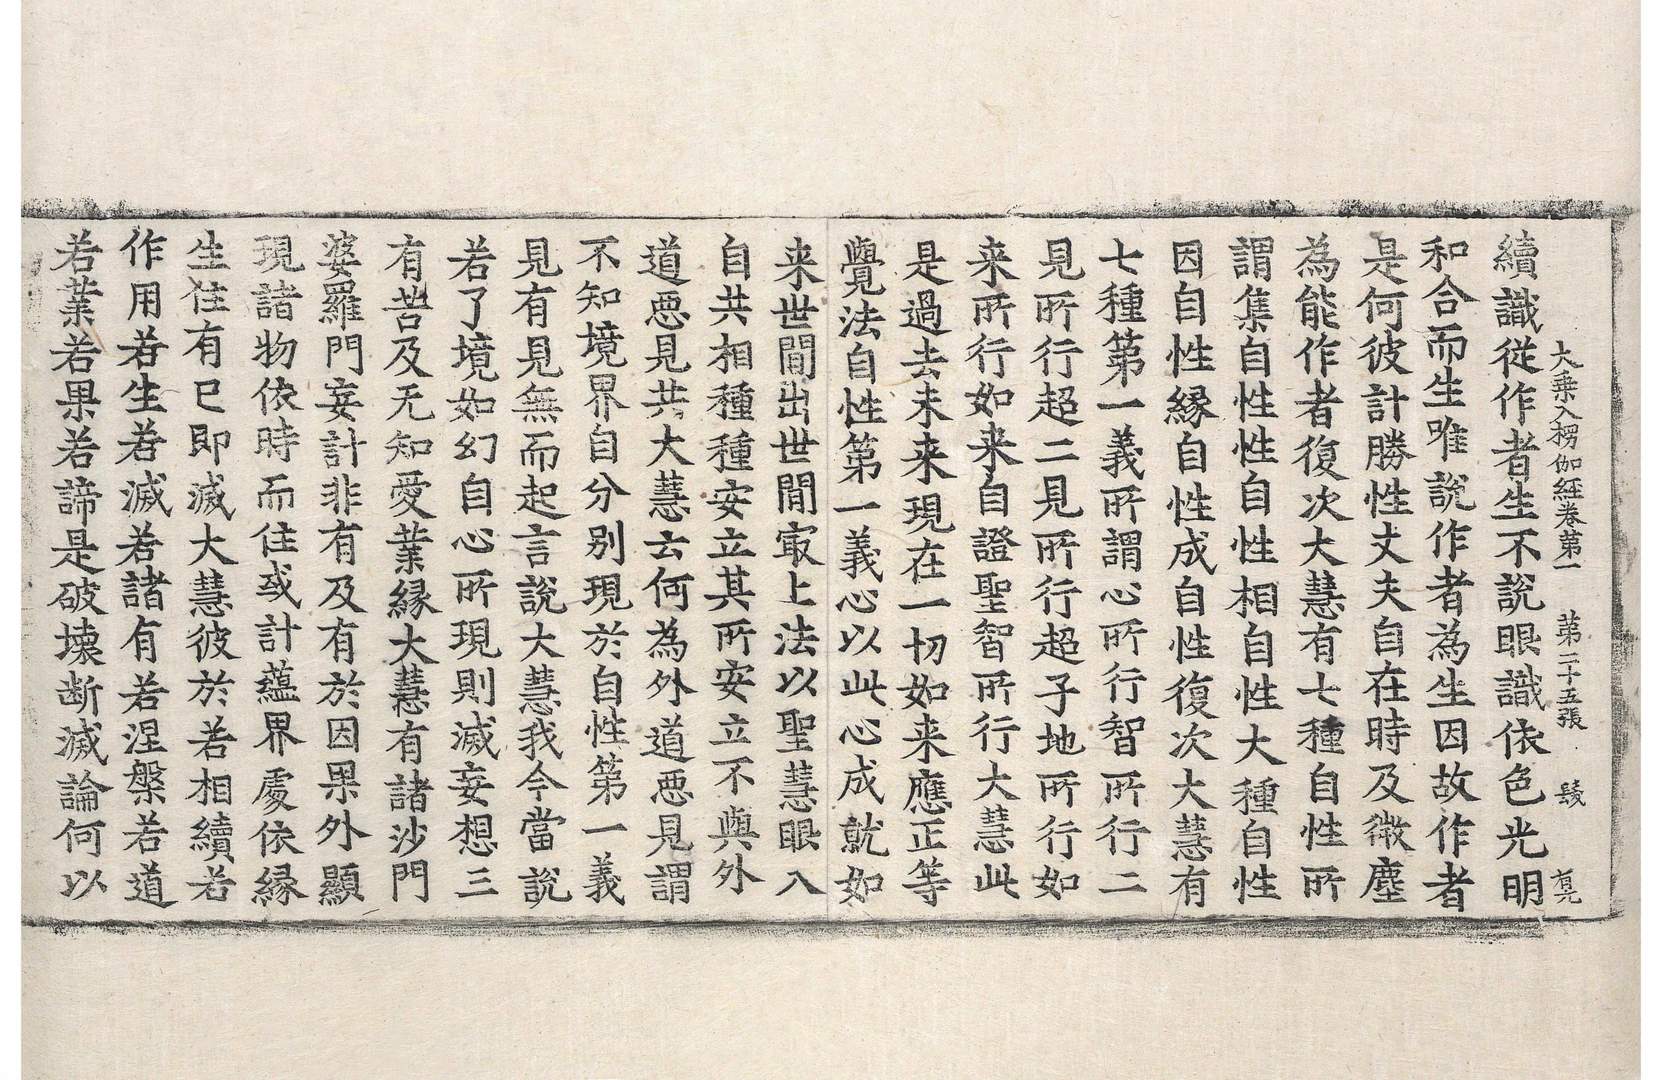 大乗入楞伽経卷第一 第二十五張 㥄 有元
續識從作者生不說眼識依色光明
和合而生唯說作者為生因故作者
是何彼計勝性丈夫自在時及微塵
為能作者復次大慧有七種自性所
謂集自性性自性相自性大種自性
因自性緣自性成自性復次大慧有
七種第一義所謂心所行智所行二
見所行超二見所行超子地所行如
来所行如来自證聖智所行大慧此
是過去未来現在一切如来應正等
覺法自性第一義心以此心成就如
来世間出世間㝡上法以聖慧眼入
自共相種種安立其所安立不與外
道惡見共大慧云何為外道惡見謂
不知境界自分別現於自性第一義
見有見無而起言說大慧我今當說
若了境如幻自心所現則滅妄想三
有苦及无知愛業緣大慧有諸沙門
婆羅門妄計非有及有於因果外顯
現諸物依時而住或計蘊界處依緣
生住有已即滅大慧彼於若相續若
作用若生若滅若諸有若涅槃若道
若業若果若諦是破壞斷滅論何以